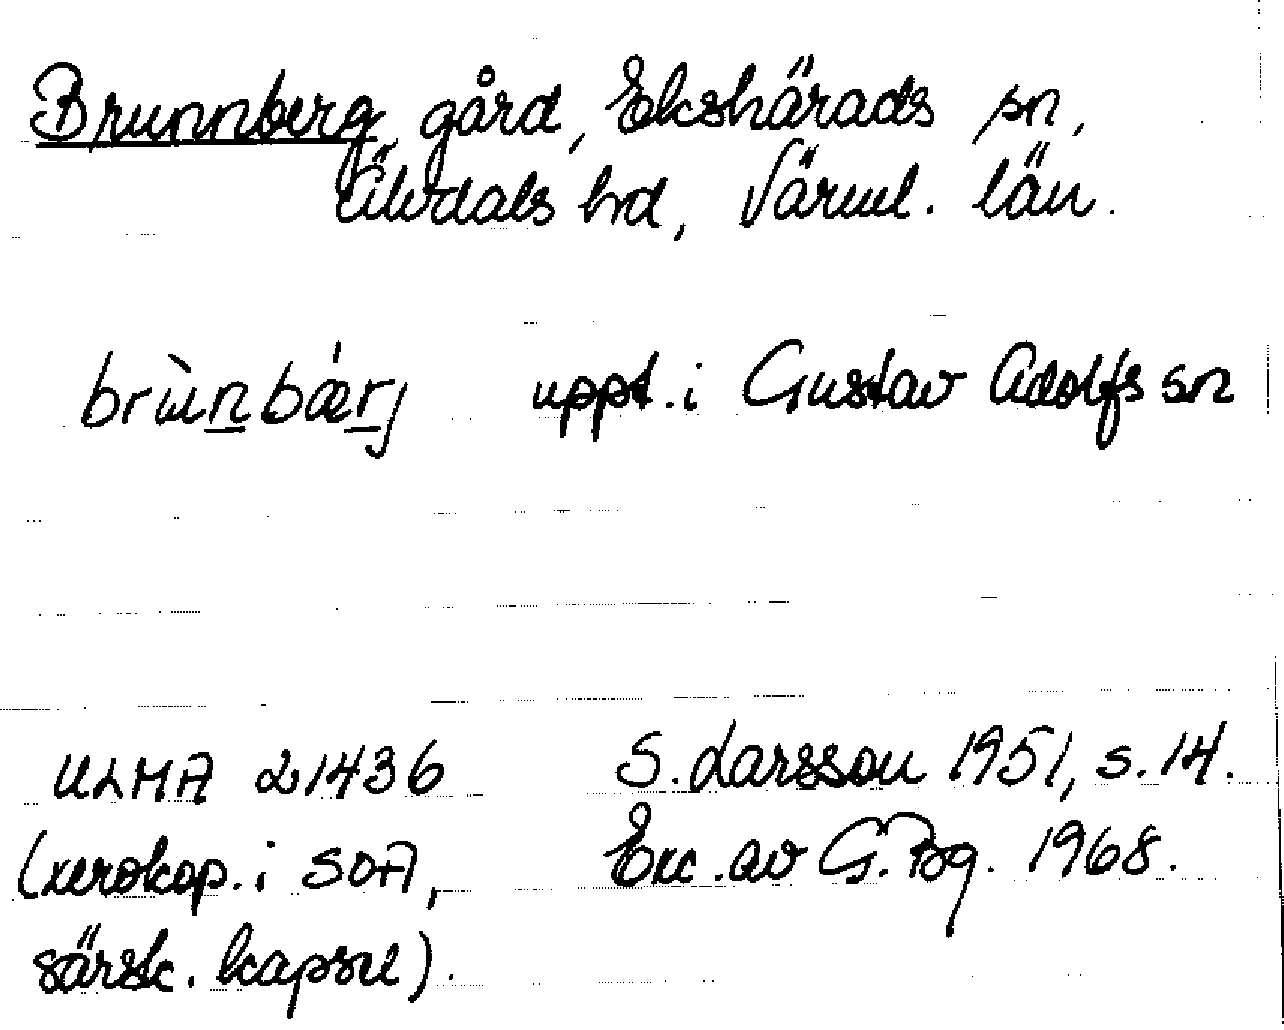 Brunnberg gård, Ekshärads sn,
Älvdals hd, Värml. län.
brùnbǽrj uppt. i Gustav Adolfs sn
ULMA 21436 S. Larsson 1951, s. 14.
(xerokop. i SOA, Exc. av G. Bg. 1968.
särsk. kapsel).